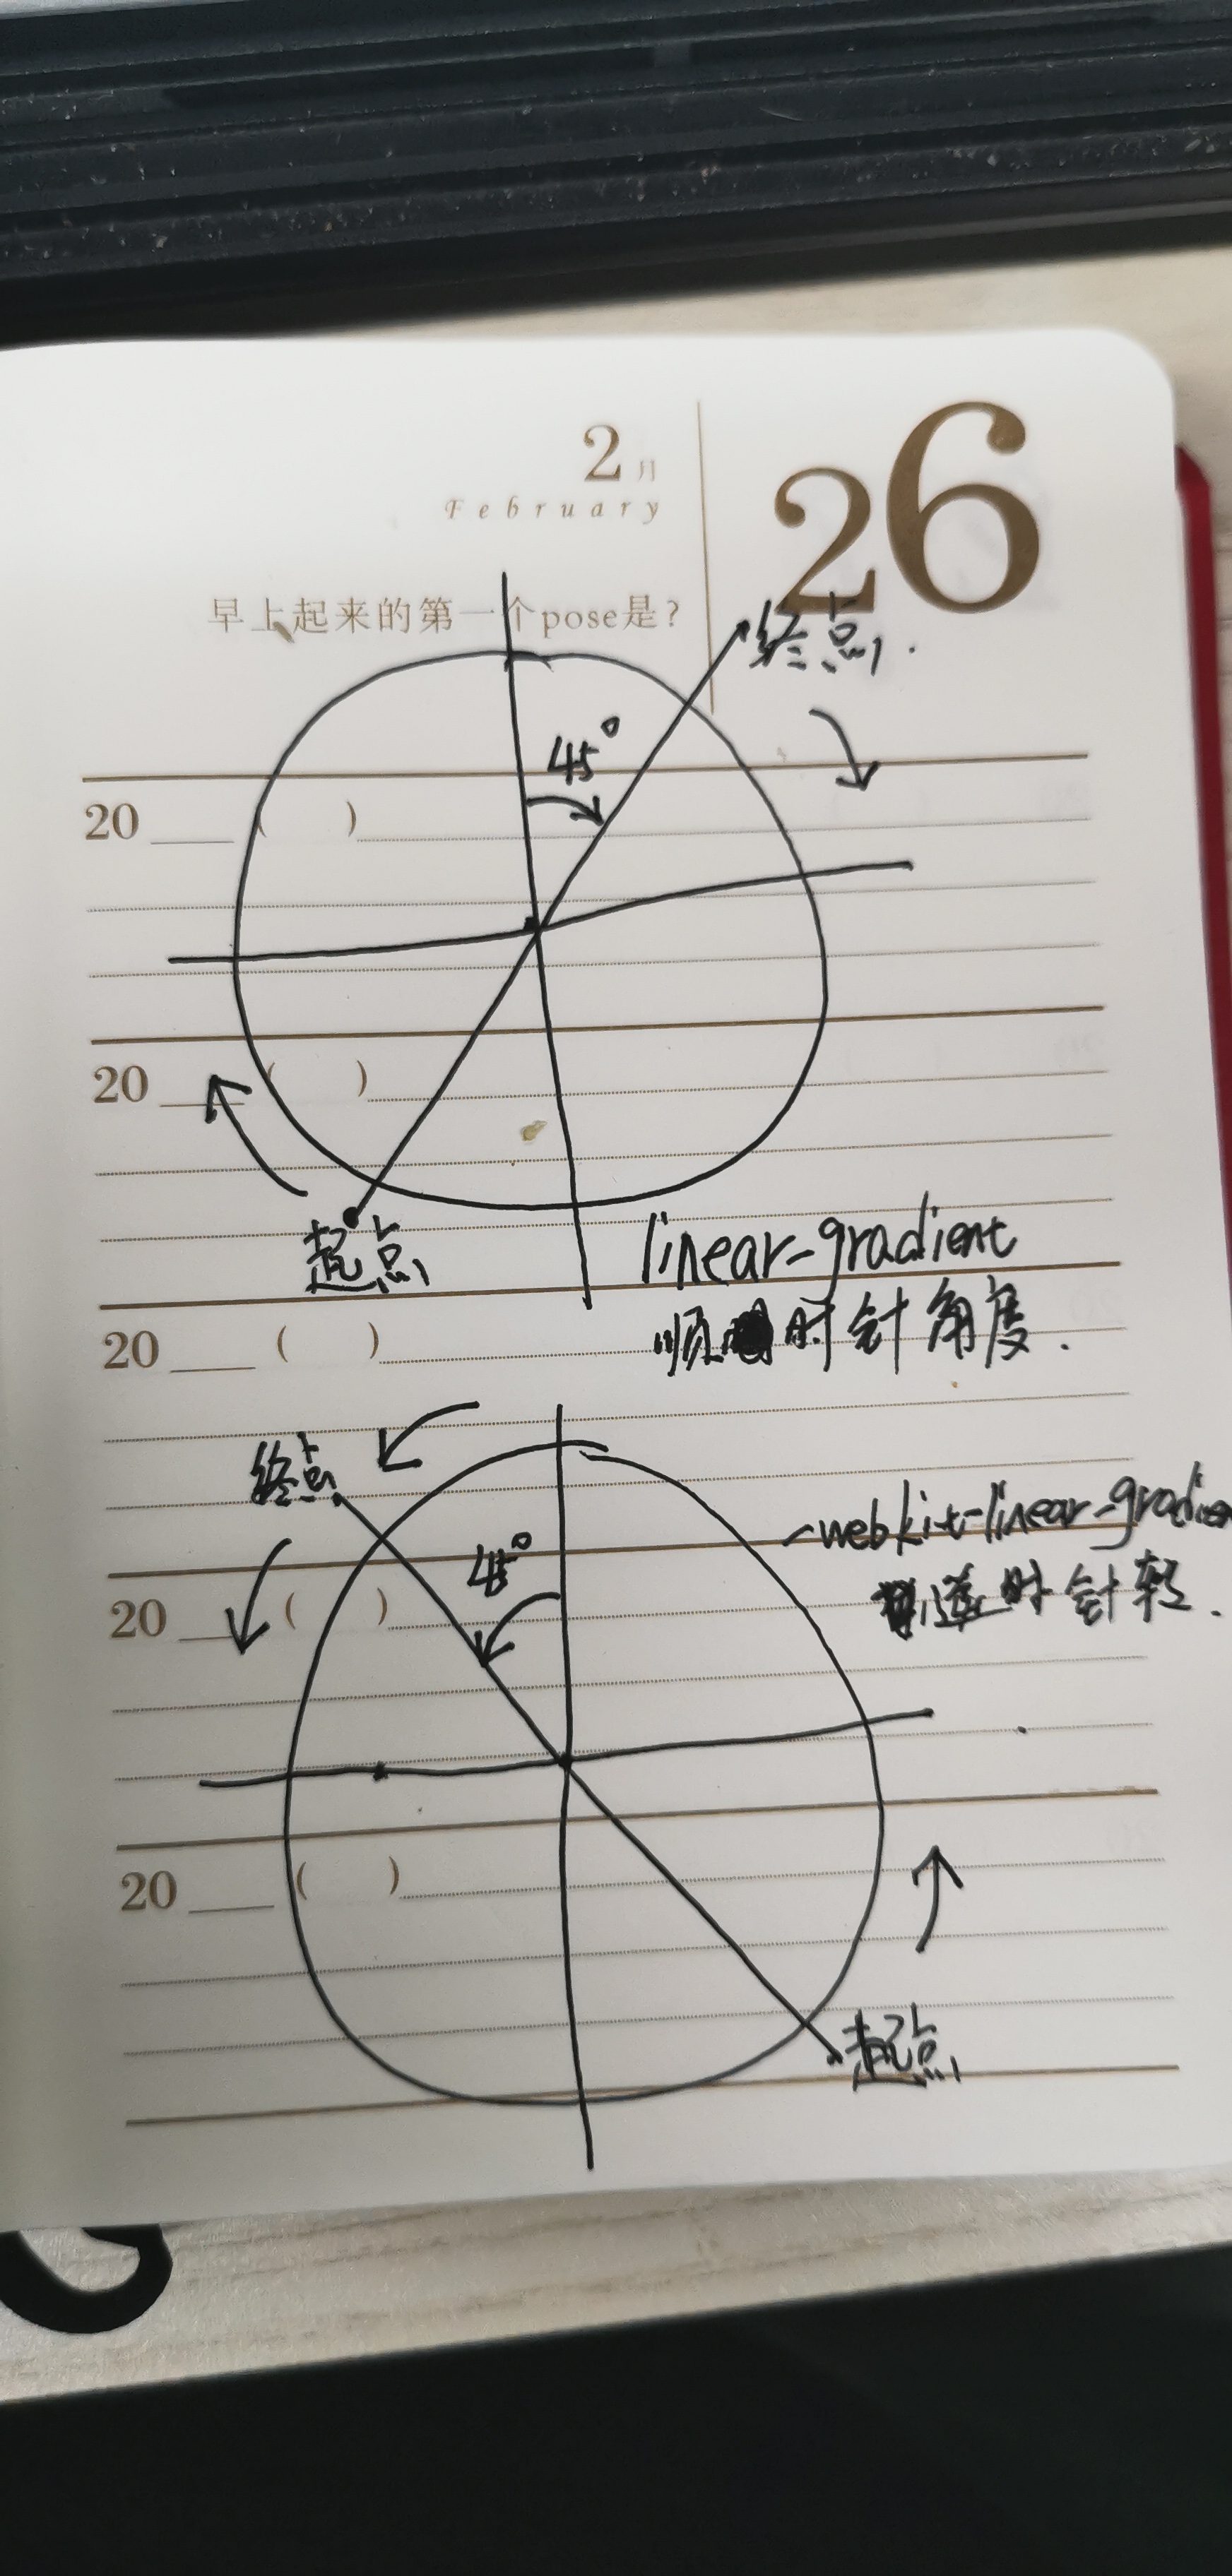 2月
February
26
早上起来的第一个pose是？
终点
45°
20 ____ ( )
20 ____ ( )
起点
linear-gradient
顺时针角度.
20 ____ ( )
终点
-webkit-linear-gradien
逆时针转.
45°
20 ____ ( )
20 ____ ( )
起点